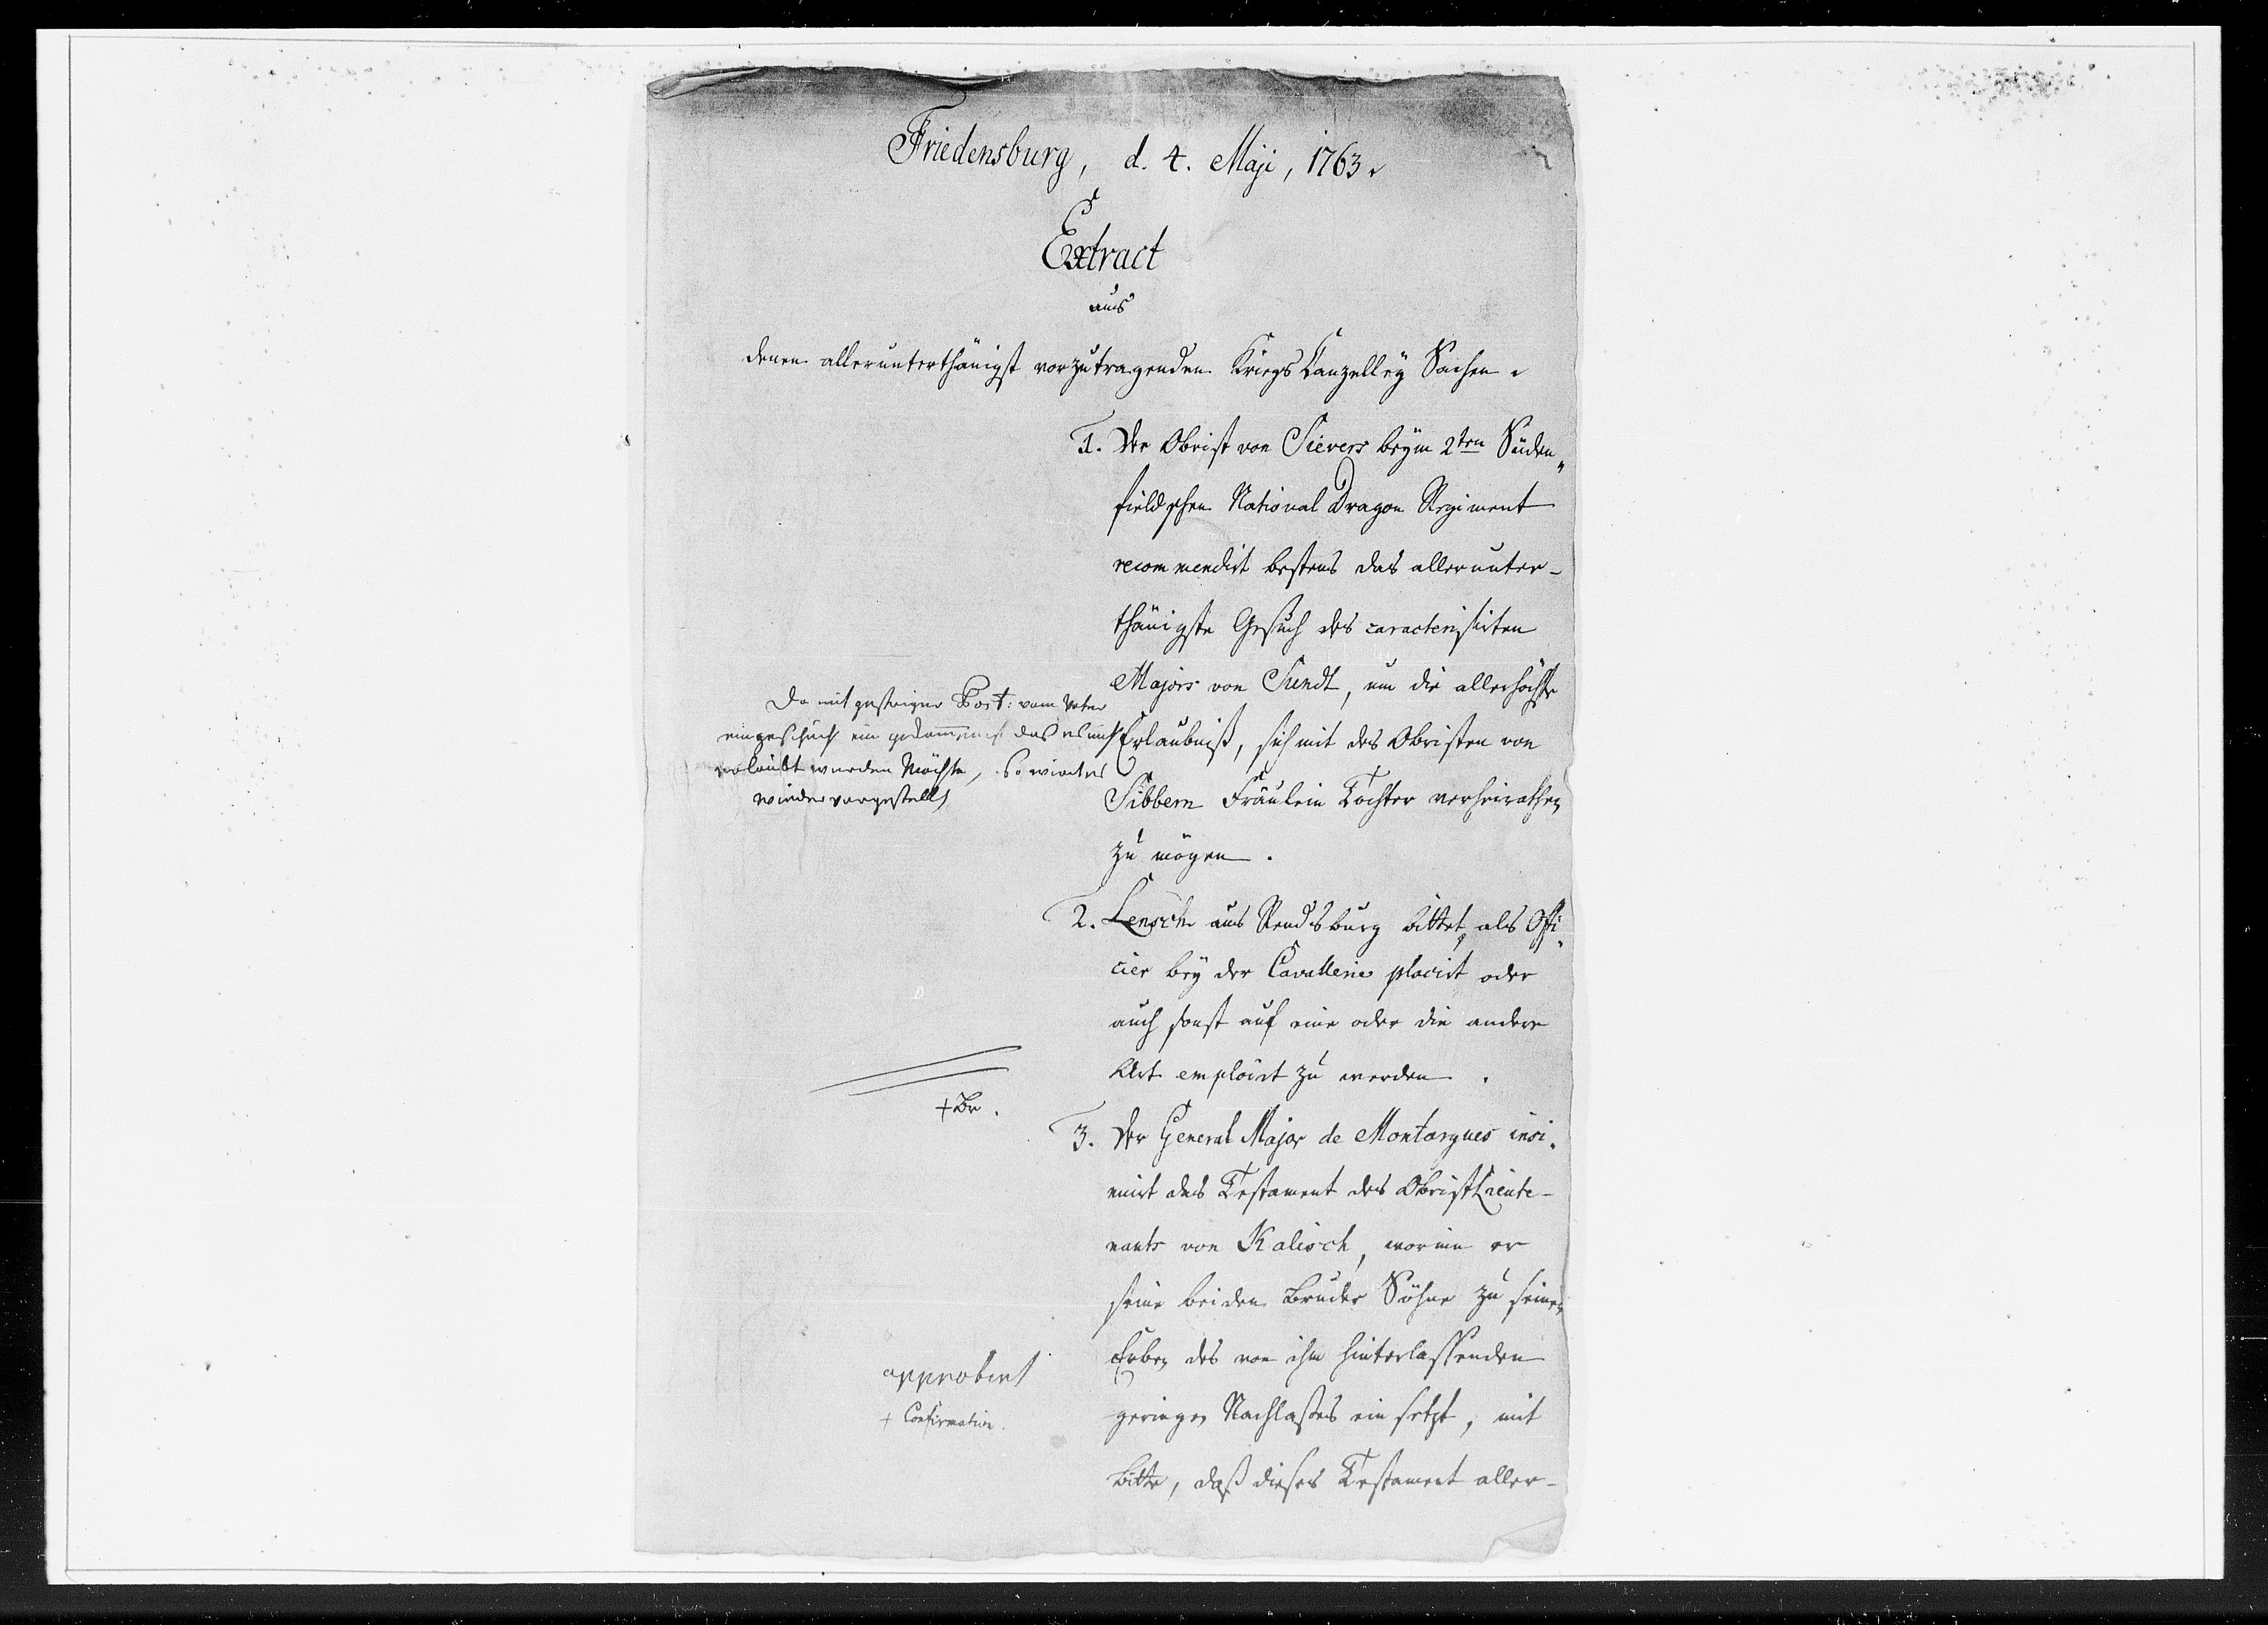 Friedensburg, d. 4. Maji, 1763.
Extract
aus
denen allerunterthänigst vorzutragenden Kriegs Canzelley Sachen.
1. Der Obrist von Sievers beym 2ten Süden„
fieldschen National Dragon Regiment
recommendirt bestens das allerunter-
thänigste Gesuch des caracterisirten
Majors von Sundt, um die allerhöchste
Erlaubniß, sich mit des Obristen von
Sibbern Fräulein Tochter verheirathen
zu mögen.
Da mit gestriger Post: vom Vater
ein gesuch ein gekommen das es nich
erlaubt werden Möchte, So wird es
wieder vorgestellt
2. Lensch aus Rendsburg bittet, als Offi„
cier bey der Cavallerie placirt oder
auch sonst auf eine oder die andere
Art emploirt zu werden.
+ Br.
3. Der General Major de Montargues insi„
nuirt das Testament des Obristlieute-
nants von Kalisch, worinn er
seine beiden Bruder Söhne zu seinen
Erben des von ihm hinterlassenden
geringen Nachlasses ein setzt, mit
Bitte, daß dieses Testament aller-
approbirt
+ Confirmation.